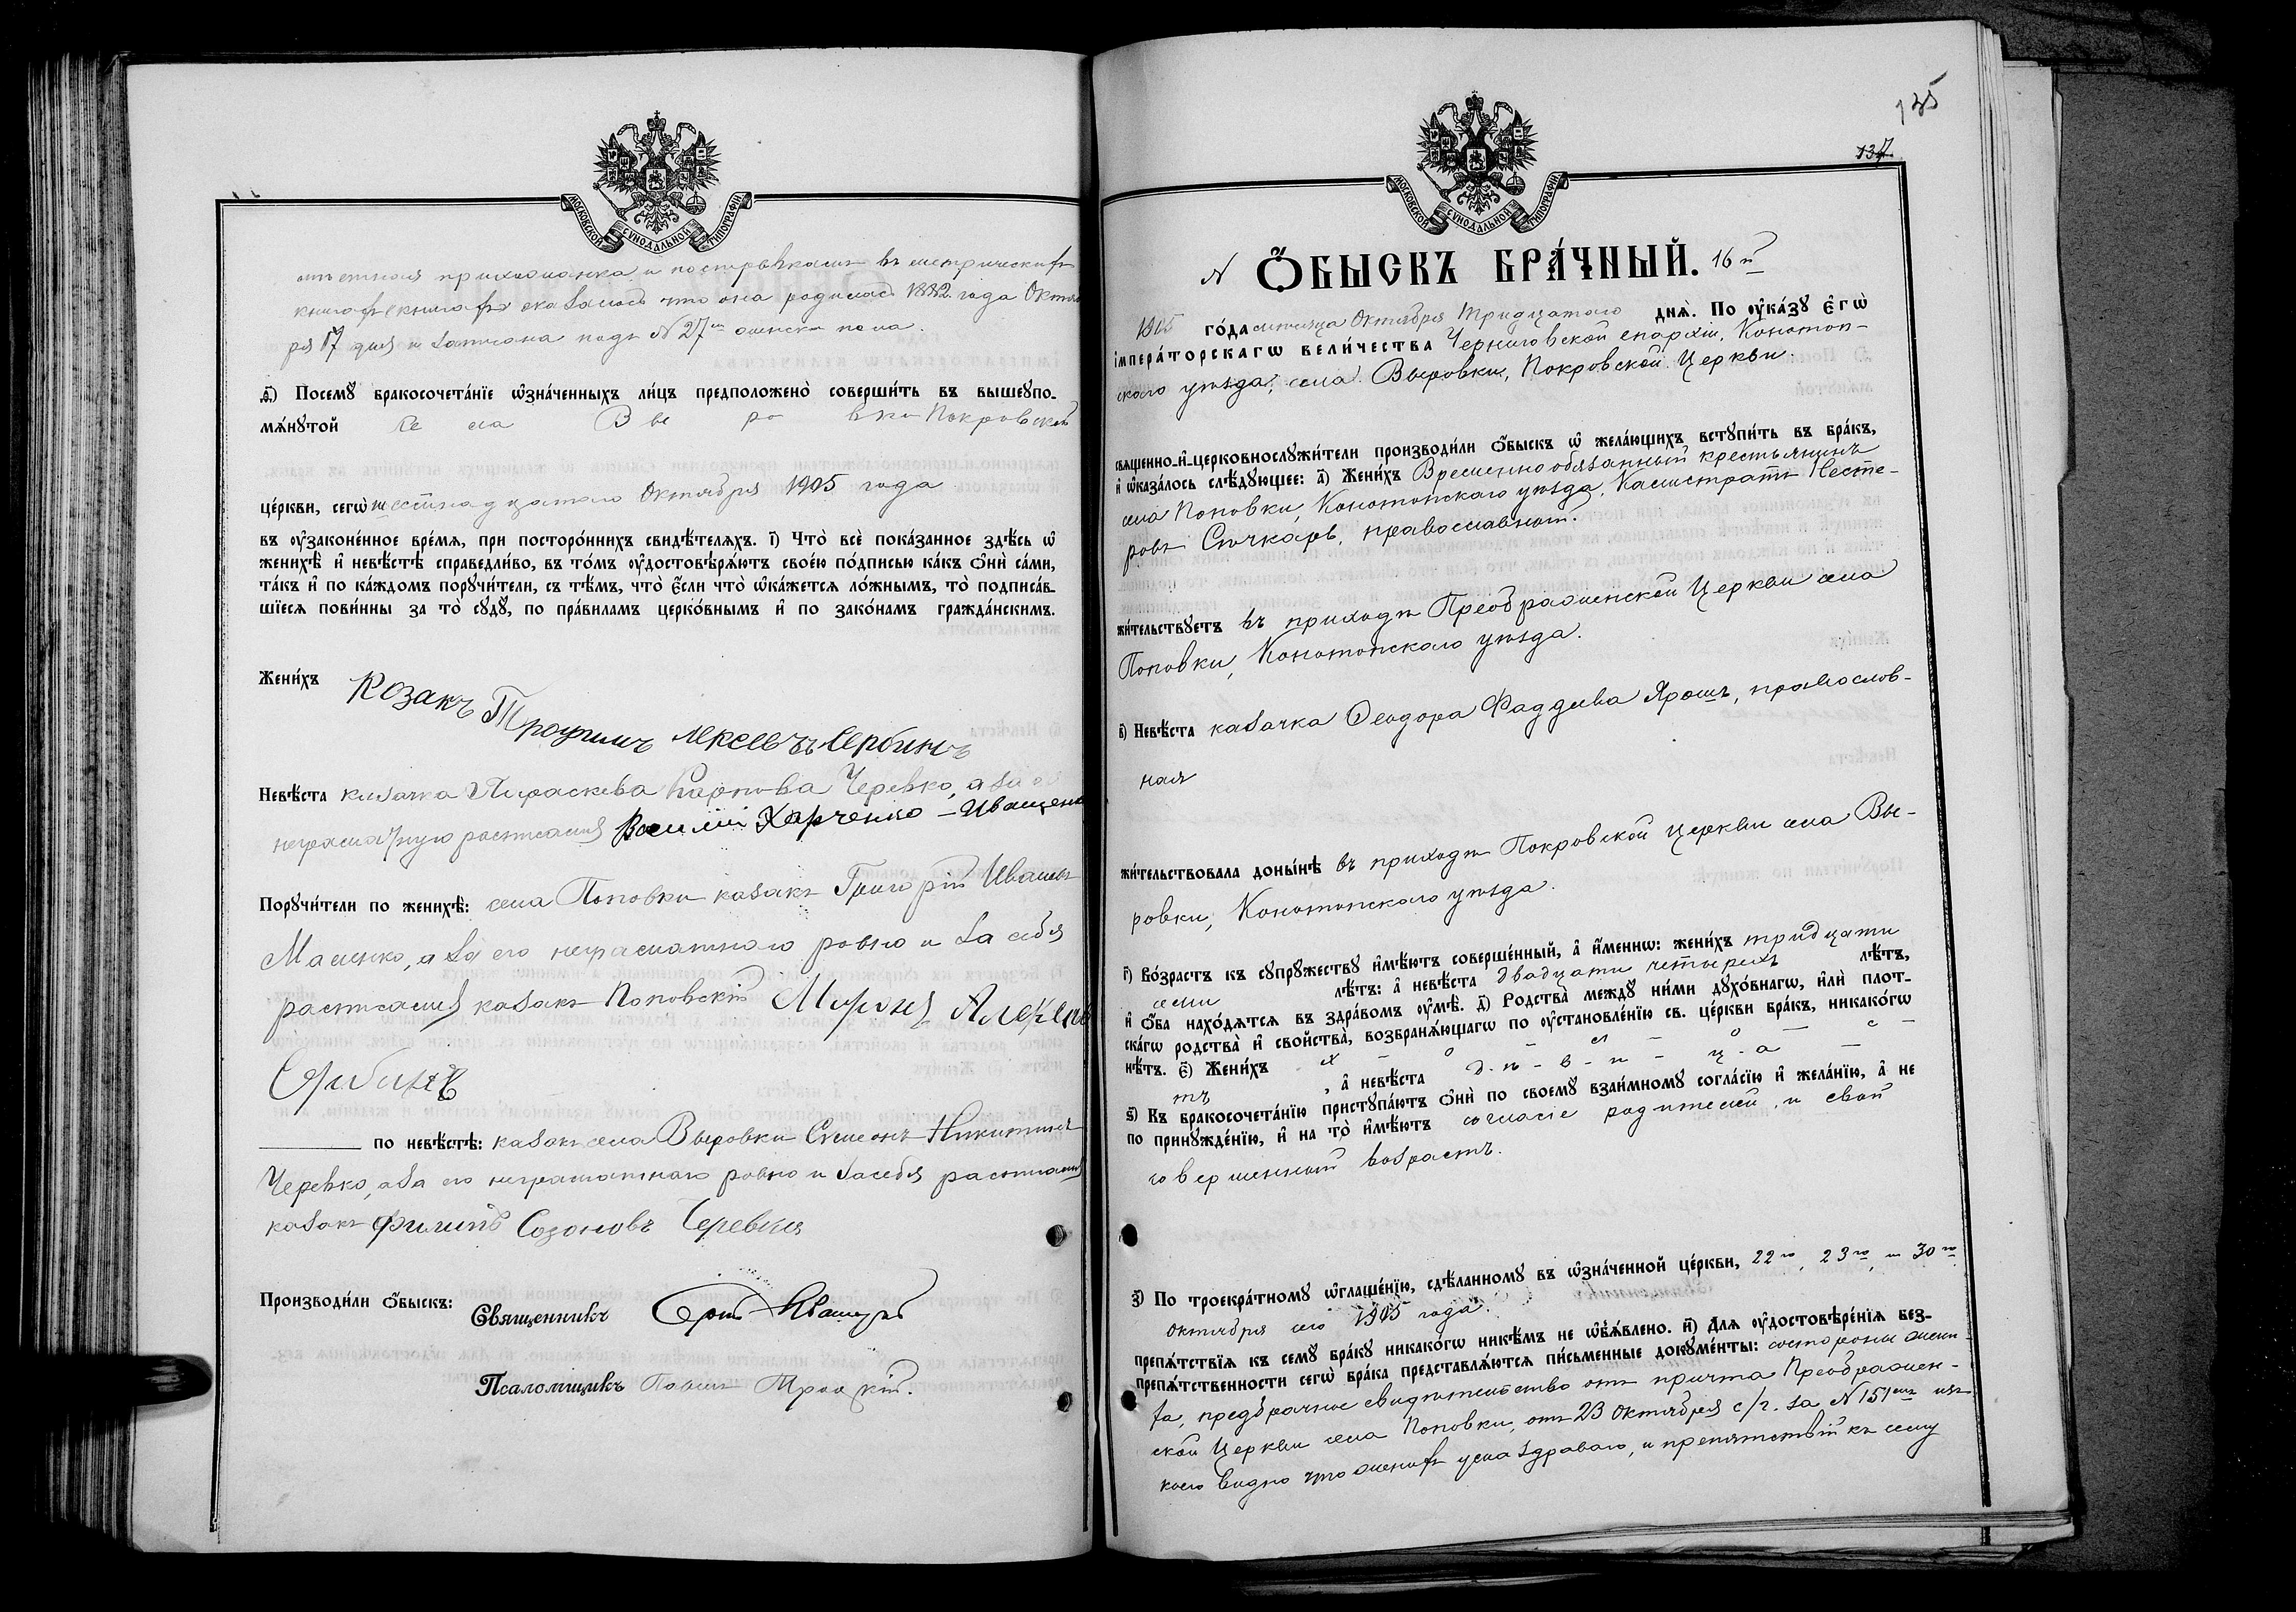 МОСКОВСКОЙ СУНОДАЛЬНОЙ ТИПОГРАФІИ
прихожанка и по справкамъ въ метрическихъ
книгахъ оказалось что она родилась 1882 года Октяб
ря 17 дня и записана подъ N 27 женска пола.
д҃і) Посемꙋ бракосочета́нїе ѡ҆зна́ченныхъ ли́цъ предположено̀ соверши́ть въ вышеꙋпо-
мѧ́нꙋтой села Выровки Покровской
це́ркви, сегѡ̀ шестнадцатаго Октября 1905 года
въ ᲂу҆законе́нное вре́мѧ, при посторо́ннихъ свидѣ́телѧхъ. і҃) Что̀ всѐ пока́занное здѣ́сь ѡ҆
женихѣ̀ и҆ невѣ́стѣ справедли́во, въ то́мъ ᲂу҆достовѣрѧ́ютъ свое́ю по́дписью ка́къ ѻ҆нѝ са́ми,
та́къ и҆ по ка́ждомъ порꙋчи́тели, съ тѣ́мъ, что̀ є҆́сли что̀ ѡ҆ка́жетсѧ ло́жнымъ, то̀ подписа́в-
шїесѧ пови́нны за то̀ сꙋдꙋ̀, по пра́виламъ церко́внымъ и҆ по зако́намъ гражда́нскимъ.
Жени́хъ Козакъ
Трофимъ Сербинъ
Невѣ́ста казачка Параскева Карпова Черевко, а за
неграмотную росписался Василій Харченко-Иващенко
Порꙋчи́тели по женихѣ̀: села Поповки казакъ Григорій Ивановъ
Маценко, а за его неграмотнаго ровно и за себя
росписался казакъ Поповскій Миронъ Алексѣевъ
Сербинъ
по невѣ́стѣ: казакъ села Выровки Симеонъ Никитинъ
Черевко, а за его неграмотнаго ровно и за себя росписался
казакъ Филипъ Созоновъ Черевко
Производи́ли ѻ҆́быскъ: Священникъ
Псаломщикъ Павелъ Троцкій.
135
137
МОСКОВСКОЙ СУНОДАЛЬНОЙ ТИПОГРАФІИ
N Ѻ҆́БЫСКЪ БРА́ЧНЫЙ. 16й
1905 го́да мѣсяца Октября Тридцатаго днѧ̀. По ᲂу҆ка́зꙋ є҆гѡ̀
і҆мпера́торскагѡ вели́чества Черниговской епархіи, Конотоп-
скаго уѣзда, села Выровки, Покровской Церкви
свѧще́нно-и҆-церковнослꙋжи́тели производи́ли ѻ҆́быскъ ѡ҆ жела́ющихъ встꙋпи́ть въ бра́къ,
и҆ ѡ҆каза́лось слѣ́дꙋющее: а҃) Жени́хъ Временнообязанный крестьянинъ
села Поповки, Конотопскаго уѣзда, Калистратъ Несте-
ровъ Сѣчкарь, православный.
жи́тельствꙋетъ въ приходѣ Преображенской Церкви села
Поповки, Конотопскаго уѣзда.
в҃) Невѣ́ста казачка Ѳеодора Фаддѣева Ярошъ, православ-
ная
жи́тельствовала доны́нѣ въ приходѣ Покровской Церкви села Вы-
ровки, Конотопскаго уѣзда.
г҃) Во́зрастъ къ сꙋпрꙋ́жествꙋ и҆мѣ́ютъ соверше́нный, а҆ и҆́меннѡ: жени́хъ тридцати
семи лѣ́тъ: а҆ невѣ́ста двадцати четырехъ лѣ́тъ,
и҆ ѻ҆́ба нахо́дѧтсѧ въ здра́вомъ ᲂу҆мѣ̀. д҃) Родства̀ междꙋ ни́ми дꙋхо́внагѡ, и҆лѝ плот-
ска́гѡ родства̀ и҆ сво́йства̀, возбранѧ́ющагѡ по ᲂу҆становле́нїю св. це́ркви бра́къ, никако́гѡ
нѣ́тъ. є҃) Жени́хъ х о л о с
тъ, а҆ невѣ́ста д ѣ в и ц а
ѕ҃) Къ бракосочета́нїю пристꙋпа́ютъ ѻ҆нѝ по своемꙋ̀ взаи́мномꙋ согла́сїю и҆ жела́нїю, а҆ не
по принꙋжде́нїю, и҆ на то̀ и҆мѣ́ютъ согласіе родителей и свой
совершенный возрастъ.
з҃) По троекра́тномꙋ ѡ҆глаше́нїю, сдѣ́ланномꙋ въ ѡ҆зна́ченной це́ркви, 22го, 23го, и 30го
октября сего 1905 года.
препѧ́тствїѧ къ семꙋ̀ бра́кꙋ никако́гѡ никѣ́мъ не ѡ҆б̾ѧ́влено. и҃) Длѧ ᲂу҆достовѣре́нїѧ без-
препѧ́тственности сегѡ̀ бра́ка представлѧ́ютсѧ пи́сьменные докꙋме́нты: со стороны жени-
ха, предбрачное свидѣтельство отъ причта Преображен-
ской Церкви села Поповки, отъ 23 Октября с/г. за N 151емъ изъ
коего видно что женихъ ума здраваго, и препятствій къ сему